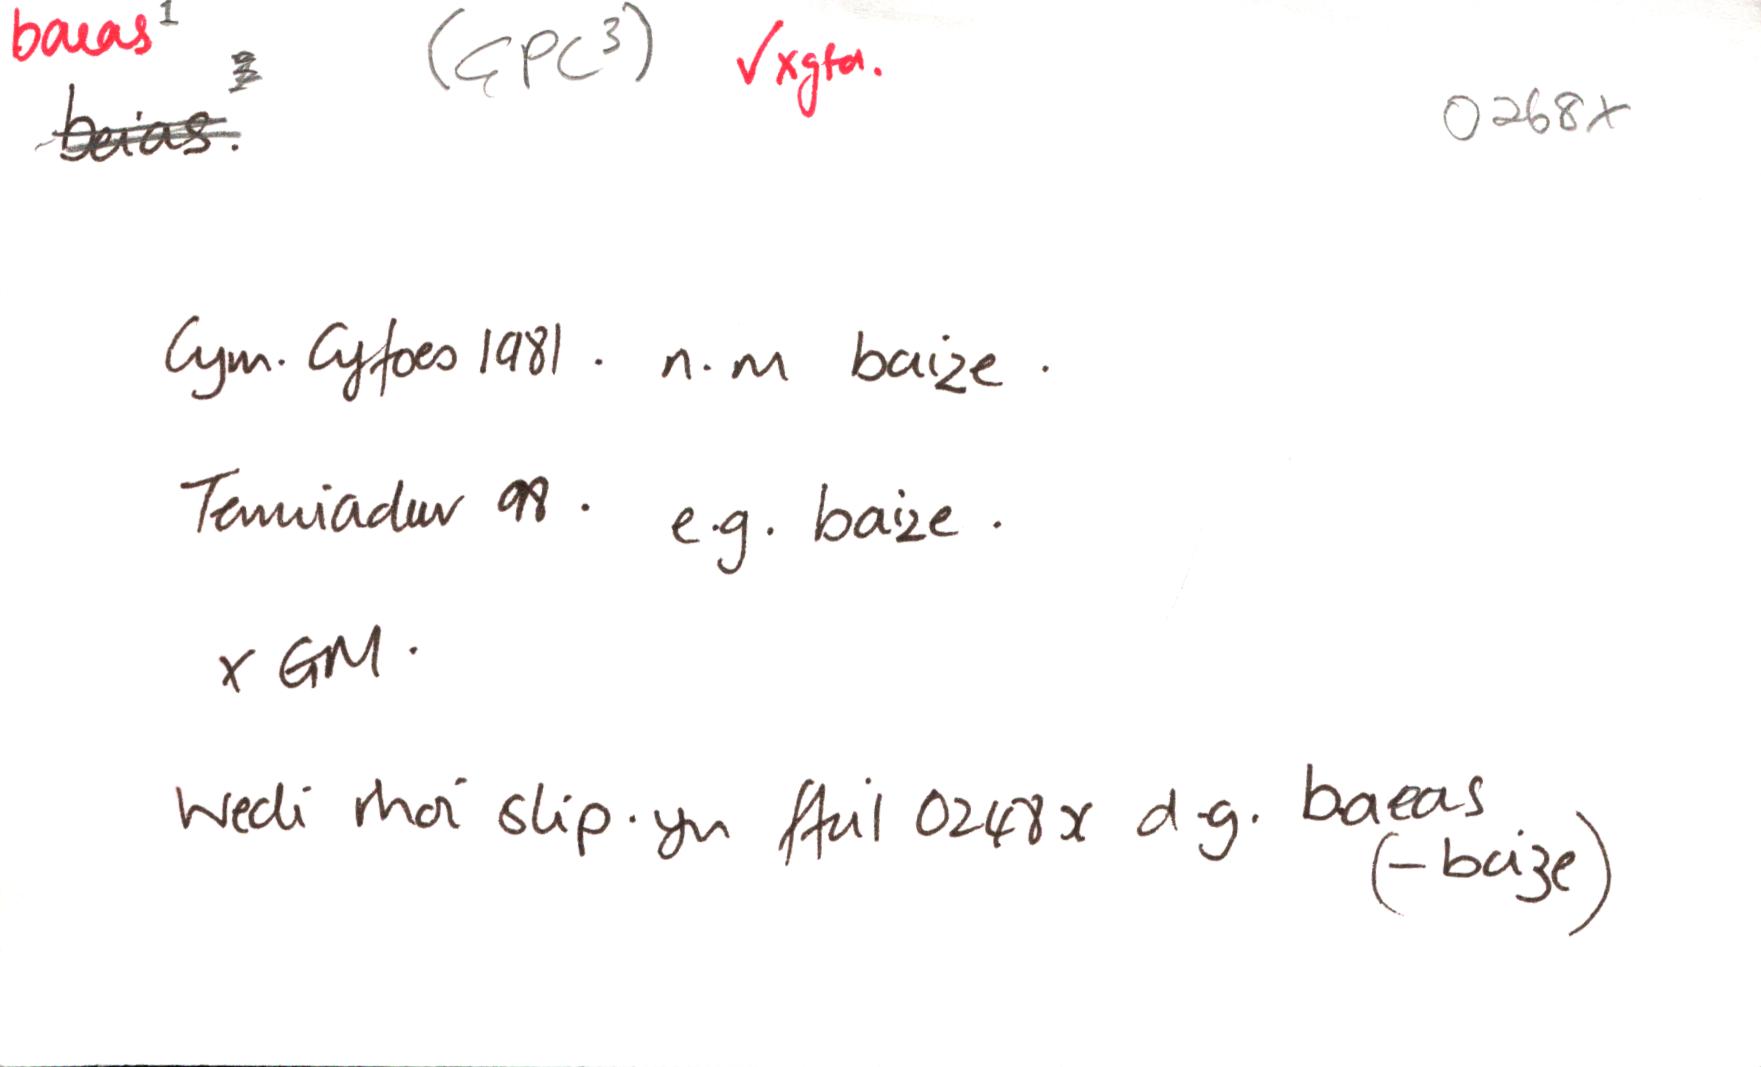 baeas¹ (GPC³) √xgfa.
beias.
0268x
Cym. Cyfoes 1981. n.m baize.
Termiadur 98. e.g. baize.
x GM.
Wedi rhoi slip yn ffeil 0248x d.g. baeas
(-baize)